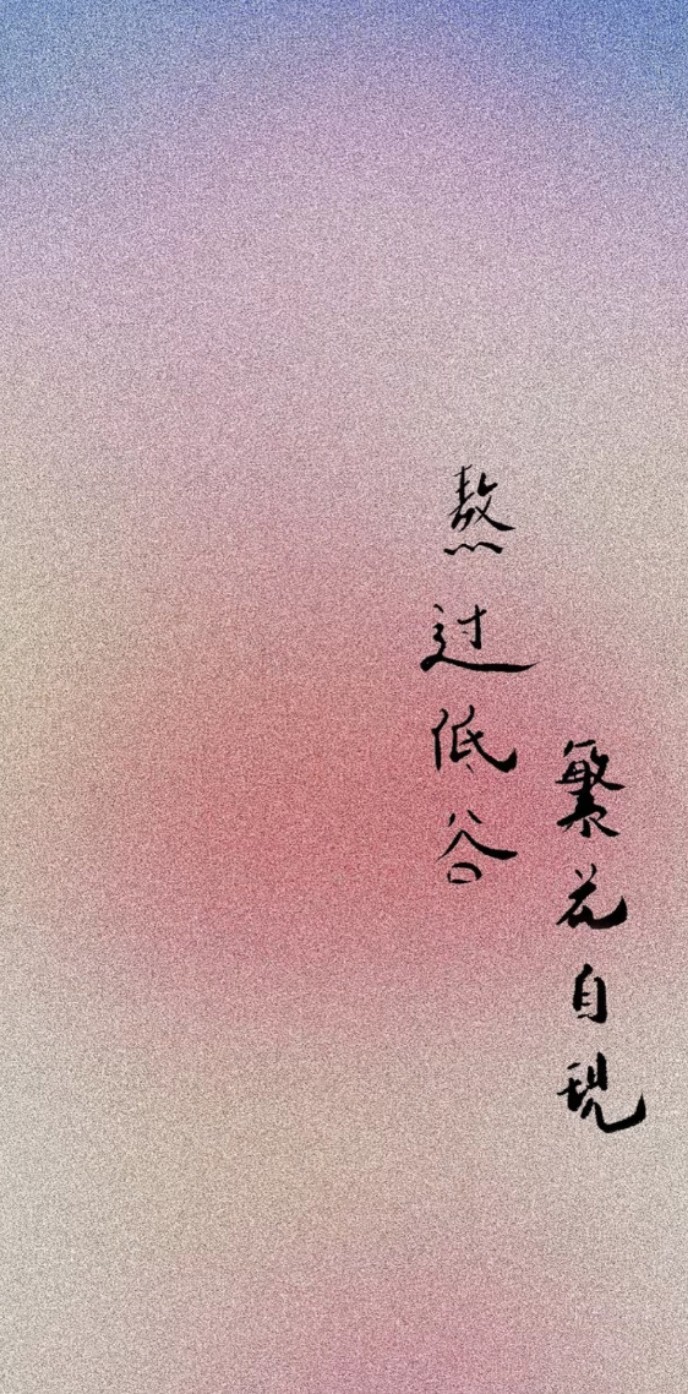 熬过低谷
繁花自现